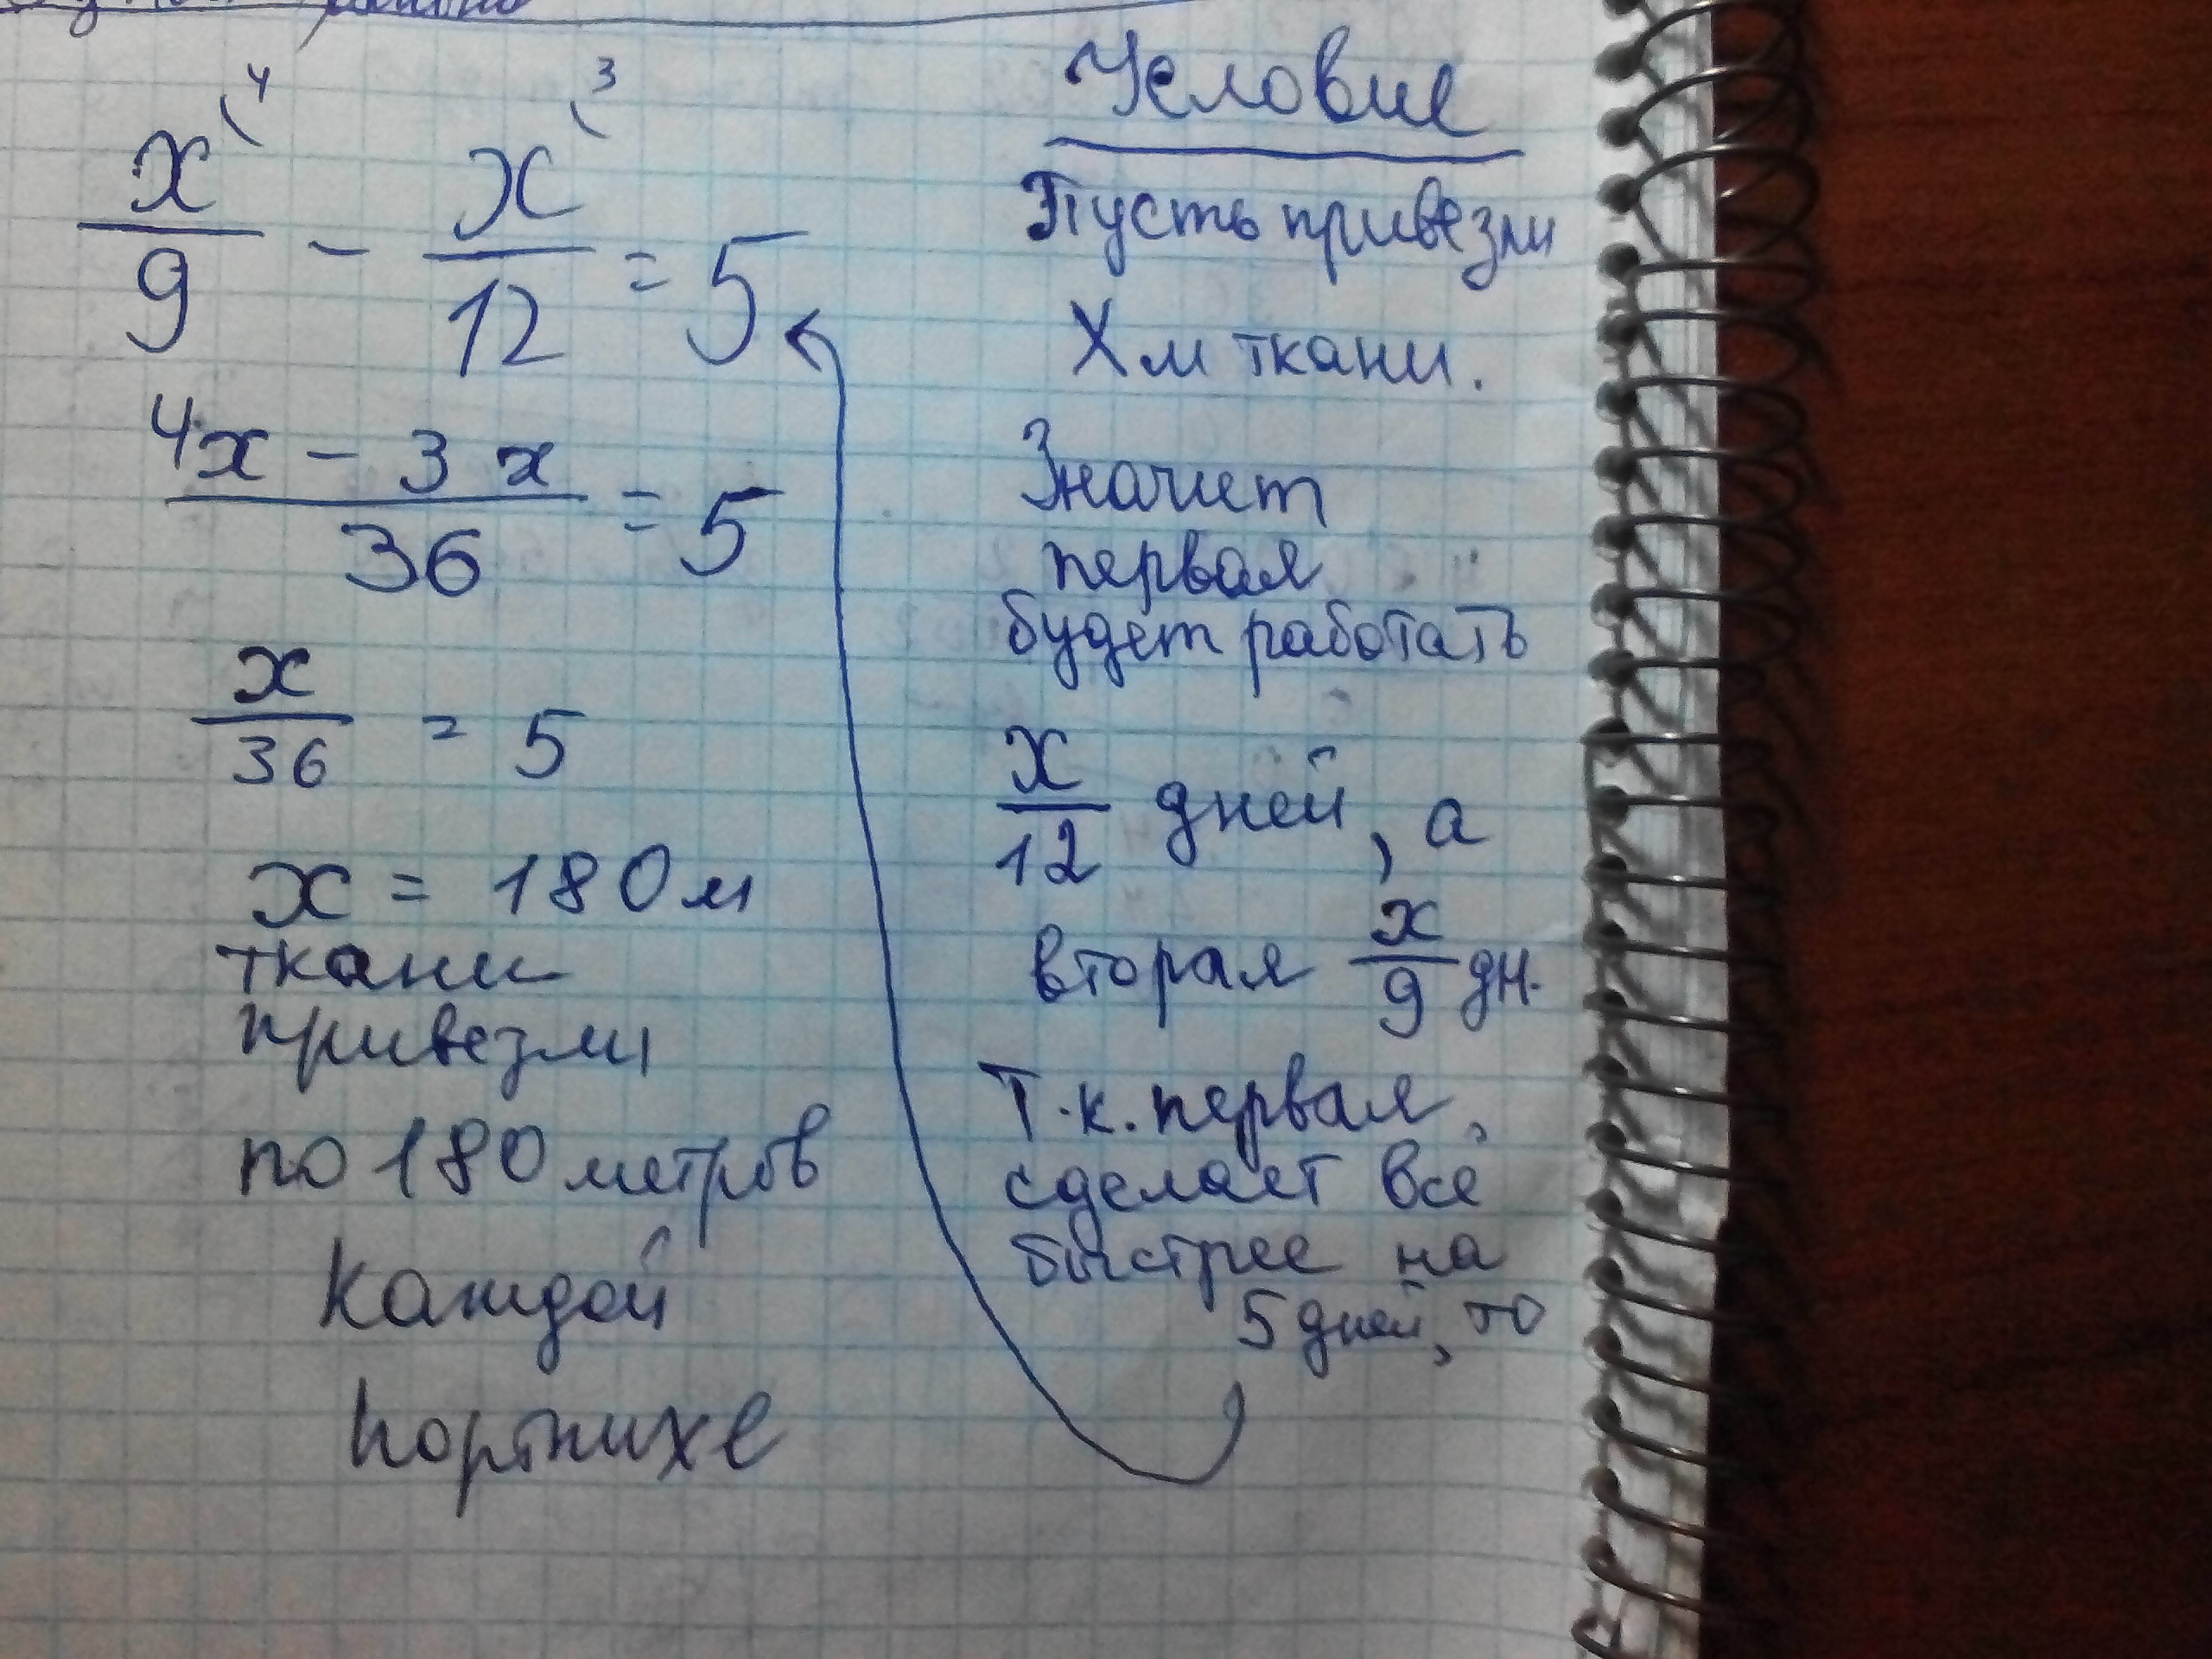 x⁽⁴ x⁽³
x/9 - x/12 = 5
4x - 3x / 36 = 5
x/36 = 5
x = 180 м
ткани
привезли
по 180 метров
каждой
портнихе
Условие
Пусть привезли
X м ткани.
Значит
первая
будет работать
x/12 дней, а
вторая x/9 дн.
Т.к. первая
сделает все
быстрее на
5 дней, то